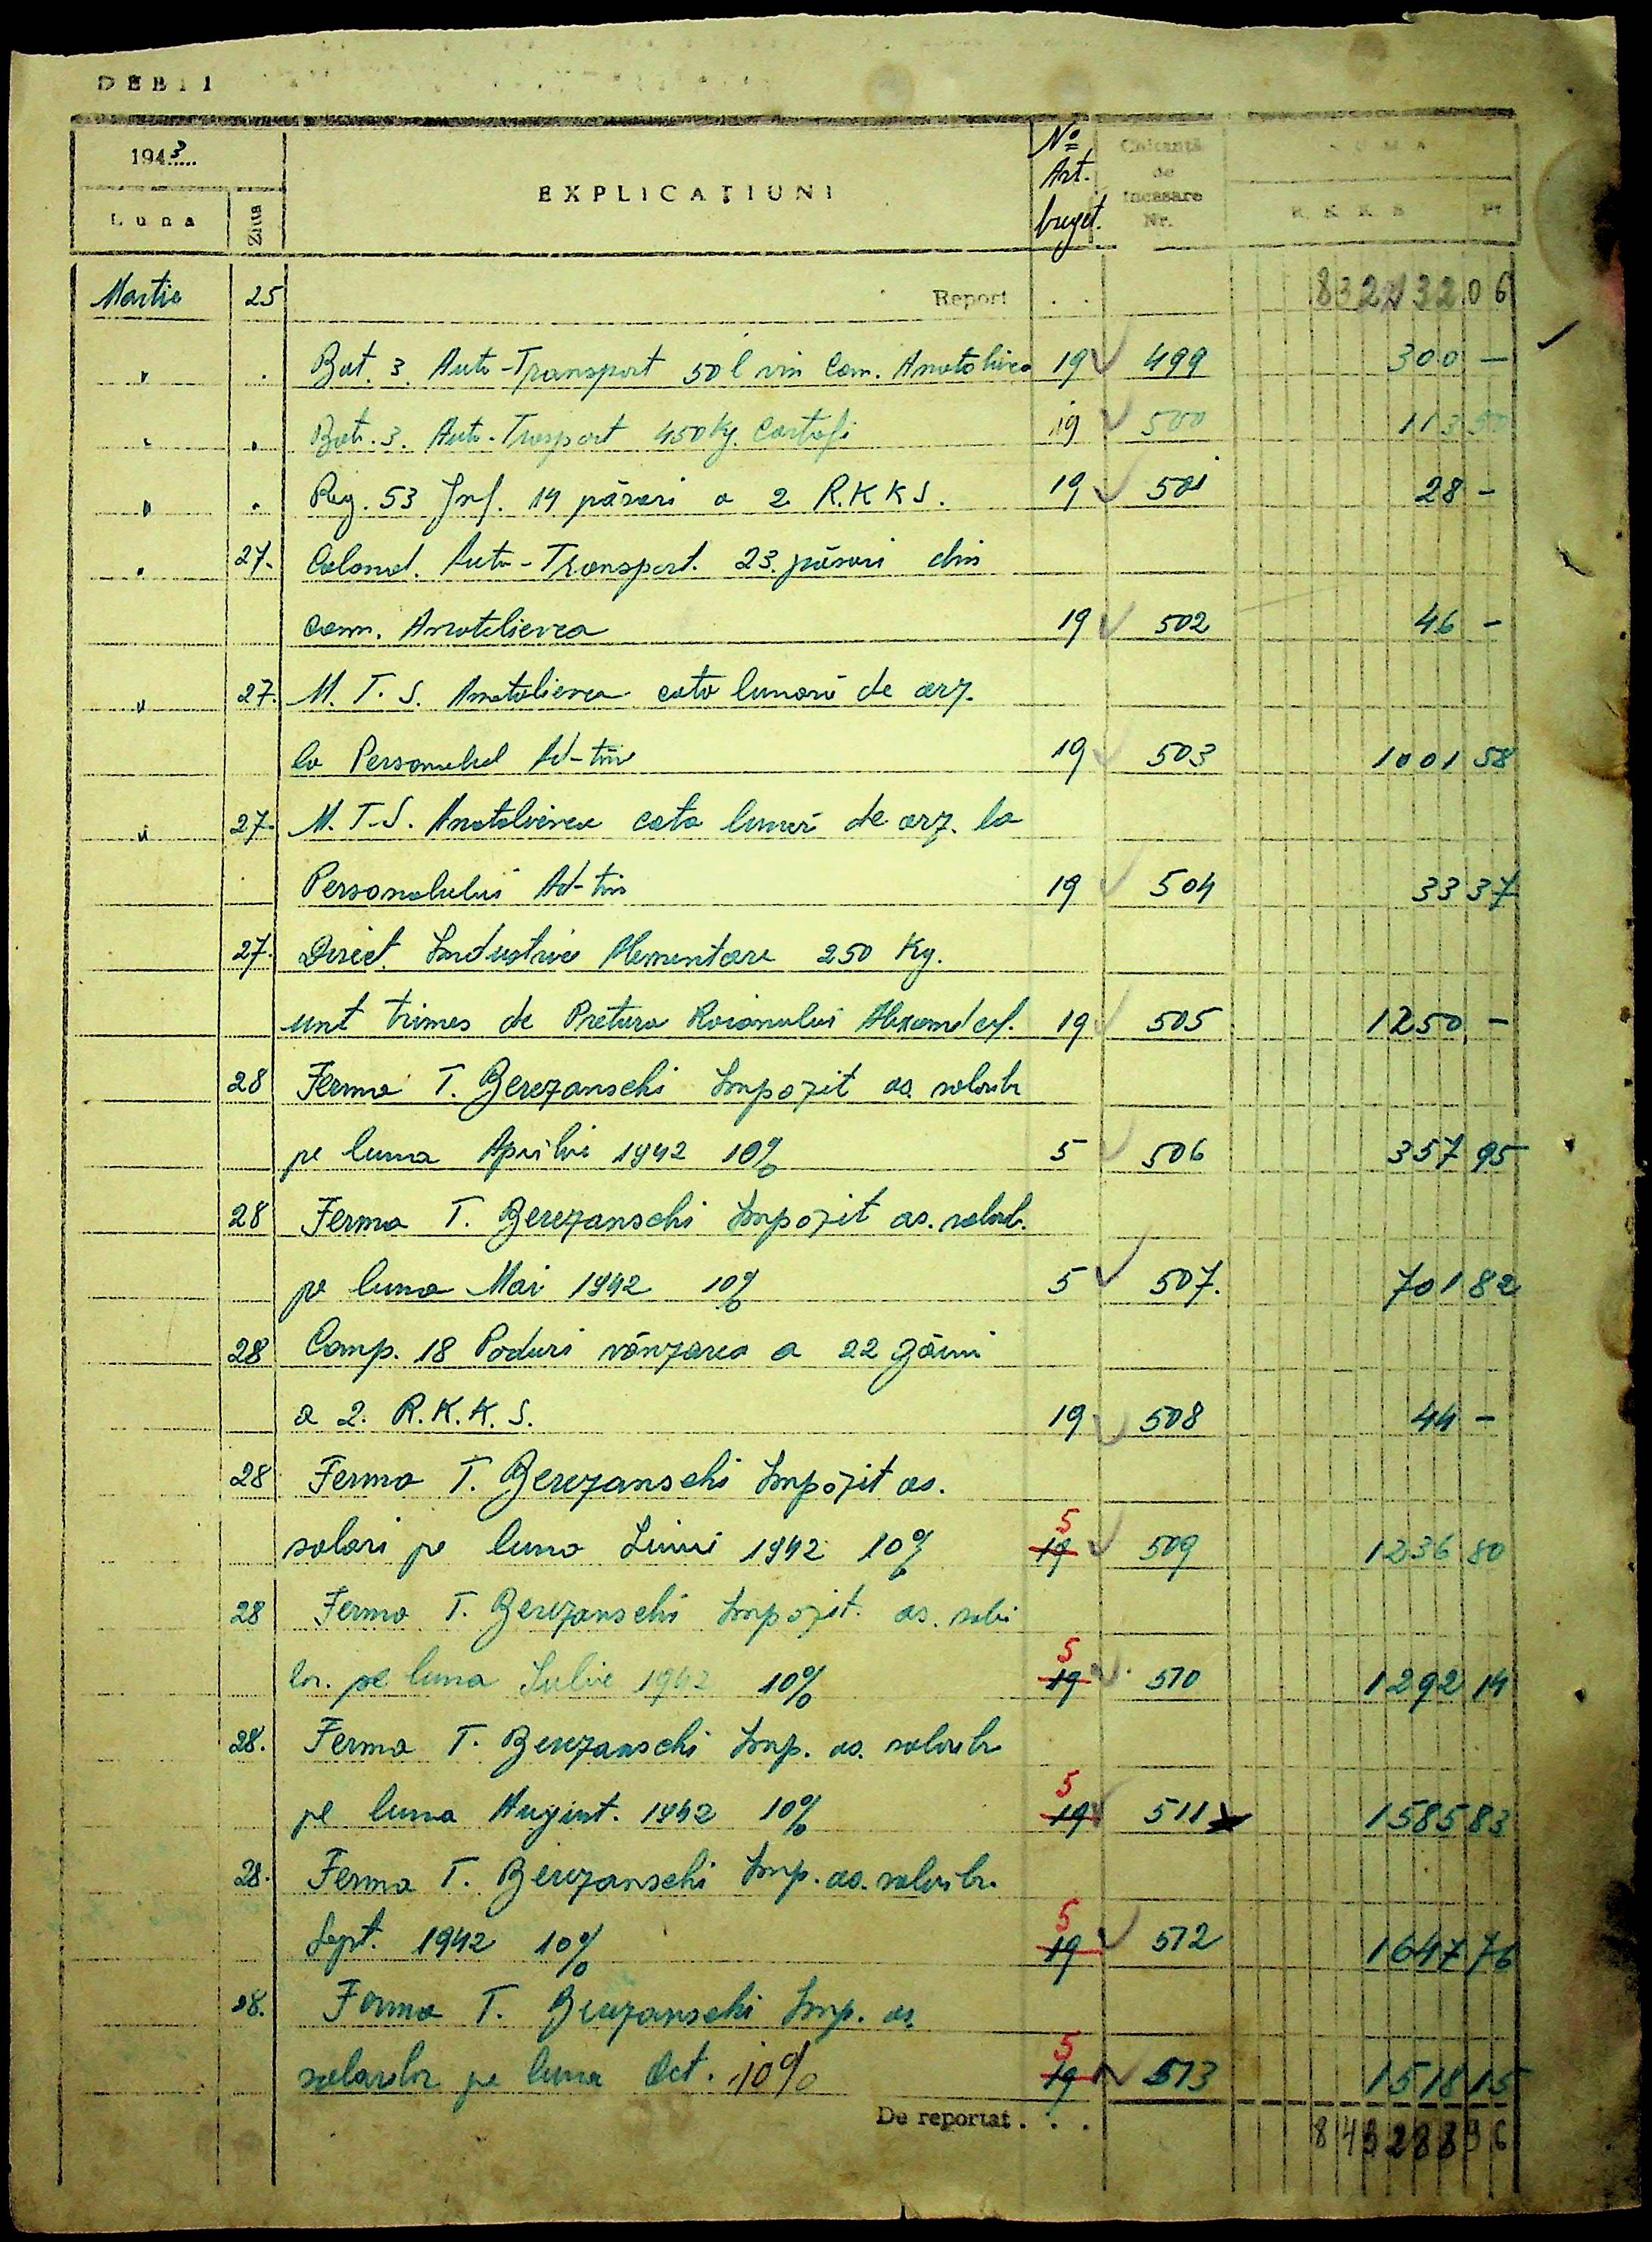 DEBIT
1943
Luna
Ziua
EXPLICAȚIUNI
No Art. buget.
Chitanță de încasare Nr.
SUMA
R K K S Pf
Martie 25 Report . . 832132 06
" . Bat. 3 Auto-Transport 50 l vin Com. 19 499 300 —
" . Bat. 3. Auto-Trasport 450 Kg. Cartofi 19 500 113 50
" . Reg. 53 Inf. 14 păsări a 2 R.K.K.S. 19 501 28 —
" 27. Auto-Transport. 23. păsări din
com. Anatolievca 19 502 46 —
" 27. M. T. S. Anatolievca cota lunară de arz.
la Personalul Ad-tiv 19 503 1001 58
" 27. M. T. S. Anatolievca cota lunară de arz. la
Personalului Ad-tiv 19 504 33 37
27. Direct. Industriei Alimentare 250 Kg.
unt trimes de Pretura Raionului 19 505 1250 —
28 Ferma T. Berezanschi Impozit as. salarilr
pe luna Aprilie 1942 10% 5 506 357 95
28 Ferma T. Berezanschi Impozit as. salarl.
pe luna Mai 1942 10% 5 507. 701 82
28 Comp. 18 Poduri vânzarea a 22 găini
a 2. R.K.K.S. 19 508 44 —
28 Ferma T. Berezanschi Impozit as.
salari pe luna Iunie 1942 10% 5 19 509 1236 80
28 Ferma T. Berezanschi Impozit. as.
lor. pe luna Iulie 1942 10% 5 19 510 1292 14
28. Ferma T. Berezanschi Imp. as. salarilr
pe luna August. 1942 10% 5 19 511 1585 83
28. Ferma T. Berezanschi Imp. as. salarilr.
Sept. 1942 10% 5 19 512 1647 76
28. Ferma T. Berezanschi Imp. as.
salarilor pe luna Oct. 10% 5 19 513 1518 15
De reportat . . . 843288 96